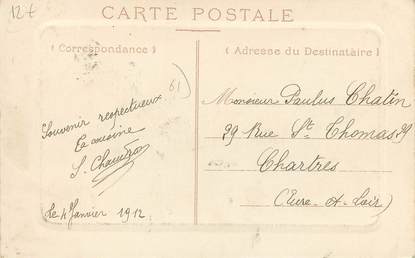 12f
CARTE POSTALE
( Correspondance )
( Adresse du Destinataire )
61
Souvenir respectueux
La cuisine
S.
Le 4 Janvier 1912
Monsieur Paulus Chatin
39 Rue St Thomas
Chartres
(Eure-et-Loir)